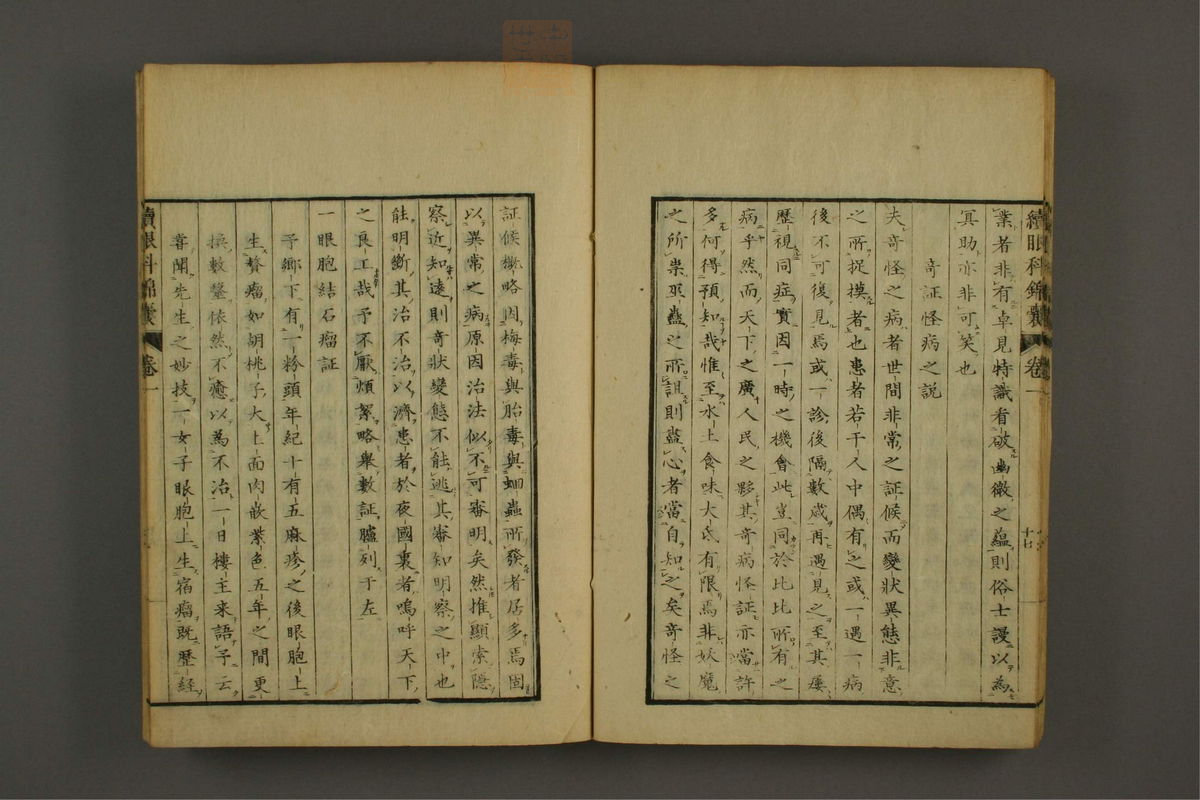 續眼科錦囊 卷一
十七
業者非有卓見特識看破幽微之蘊則俗士謾以為
冥助亦非可笑也
奇証怪病之説
夫奇怪之病者世間非常之証候而變状異態非意
之所捉摸者也患者若干人中偶有之或一遇一病
後不可復見焉或一診後隔數歳再遇見之至其屢
歴視同症實因一時之機會此豈同於比比所有之
病乎然而天下之廣人民之夥其奇病怪証亦當許
多何得預知哉惟至水土食味大氐有限焉非妖魔
之所祟巫蠱之所詛則盡心者當自知之矣奇怪之
証候概略因梅毒與胎毒與蛔蟲所發者居多焉固
以異常之病原因治法似不可審明矣然推顯索隱
察近知遠則奇狀變態不能逃其審知明察之中也
能明斷其治不治以濟患者於夜國裏者嗚呼天下
之良工哉予不厭煩絮略舉數証臚列于左
一眼胞結石瘤証
予郷下有一粉頭年紀十有五麻疹之後眼胞上
生贅瘤如胡桃子大上面肉嵌紫色五年之間更
換數醫依然不癒以為不治一日樓主来語予云
甞聞先生之妙技一女子眼胞上生宿瘤既歴経
續眼科錦囊 卷一